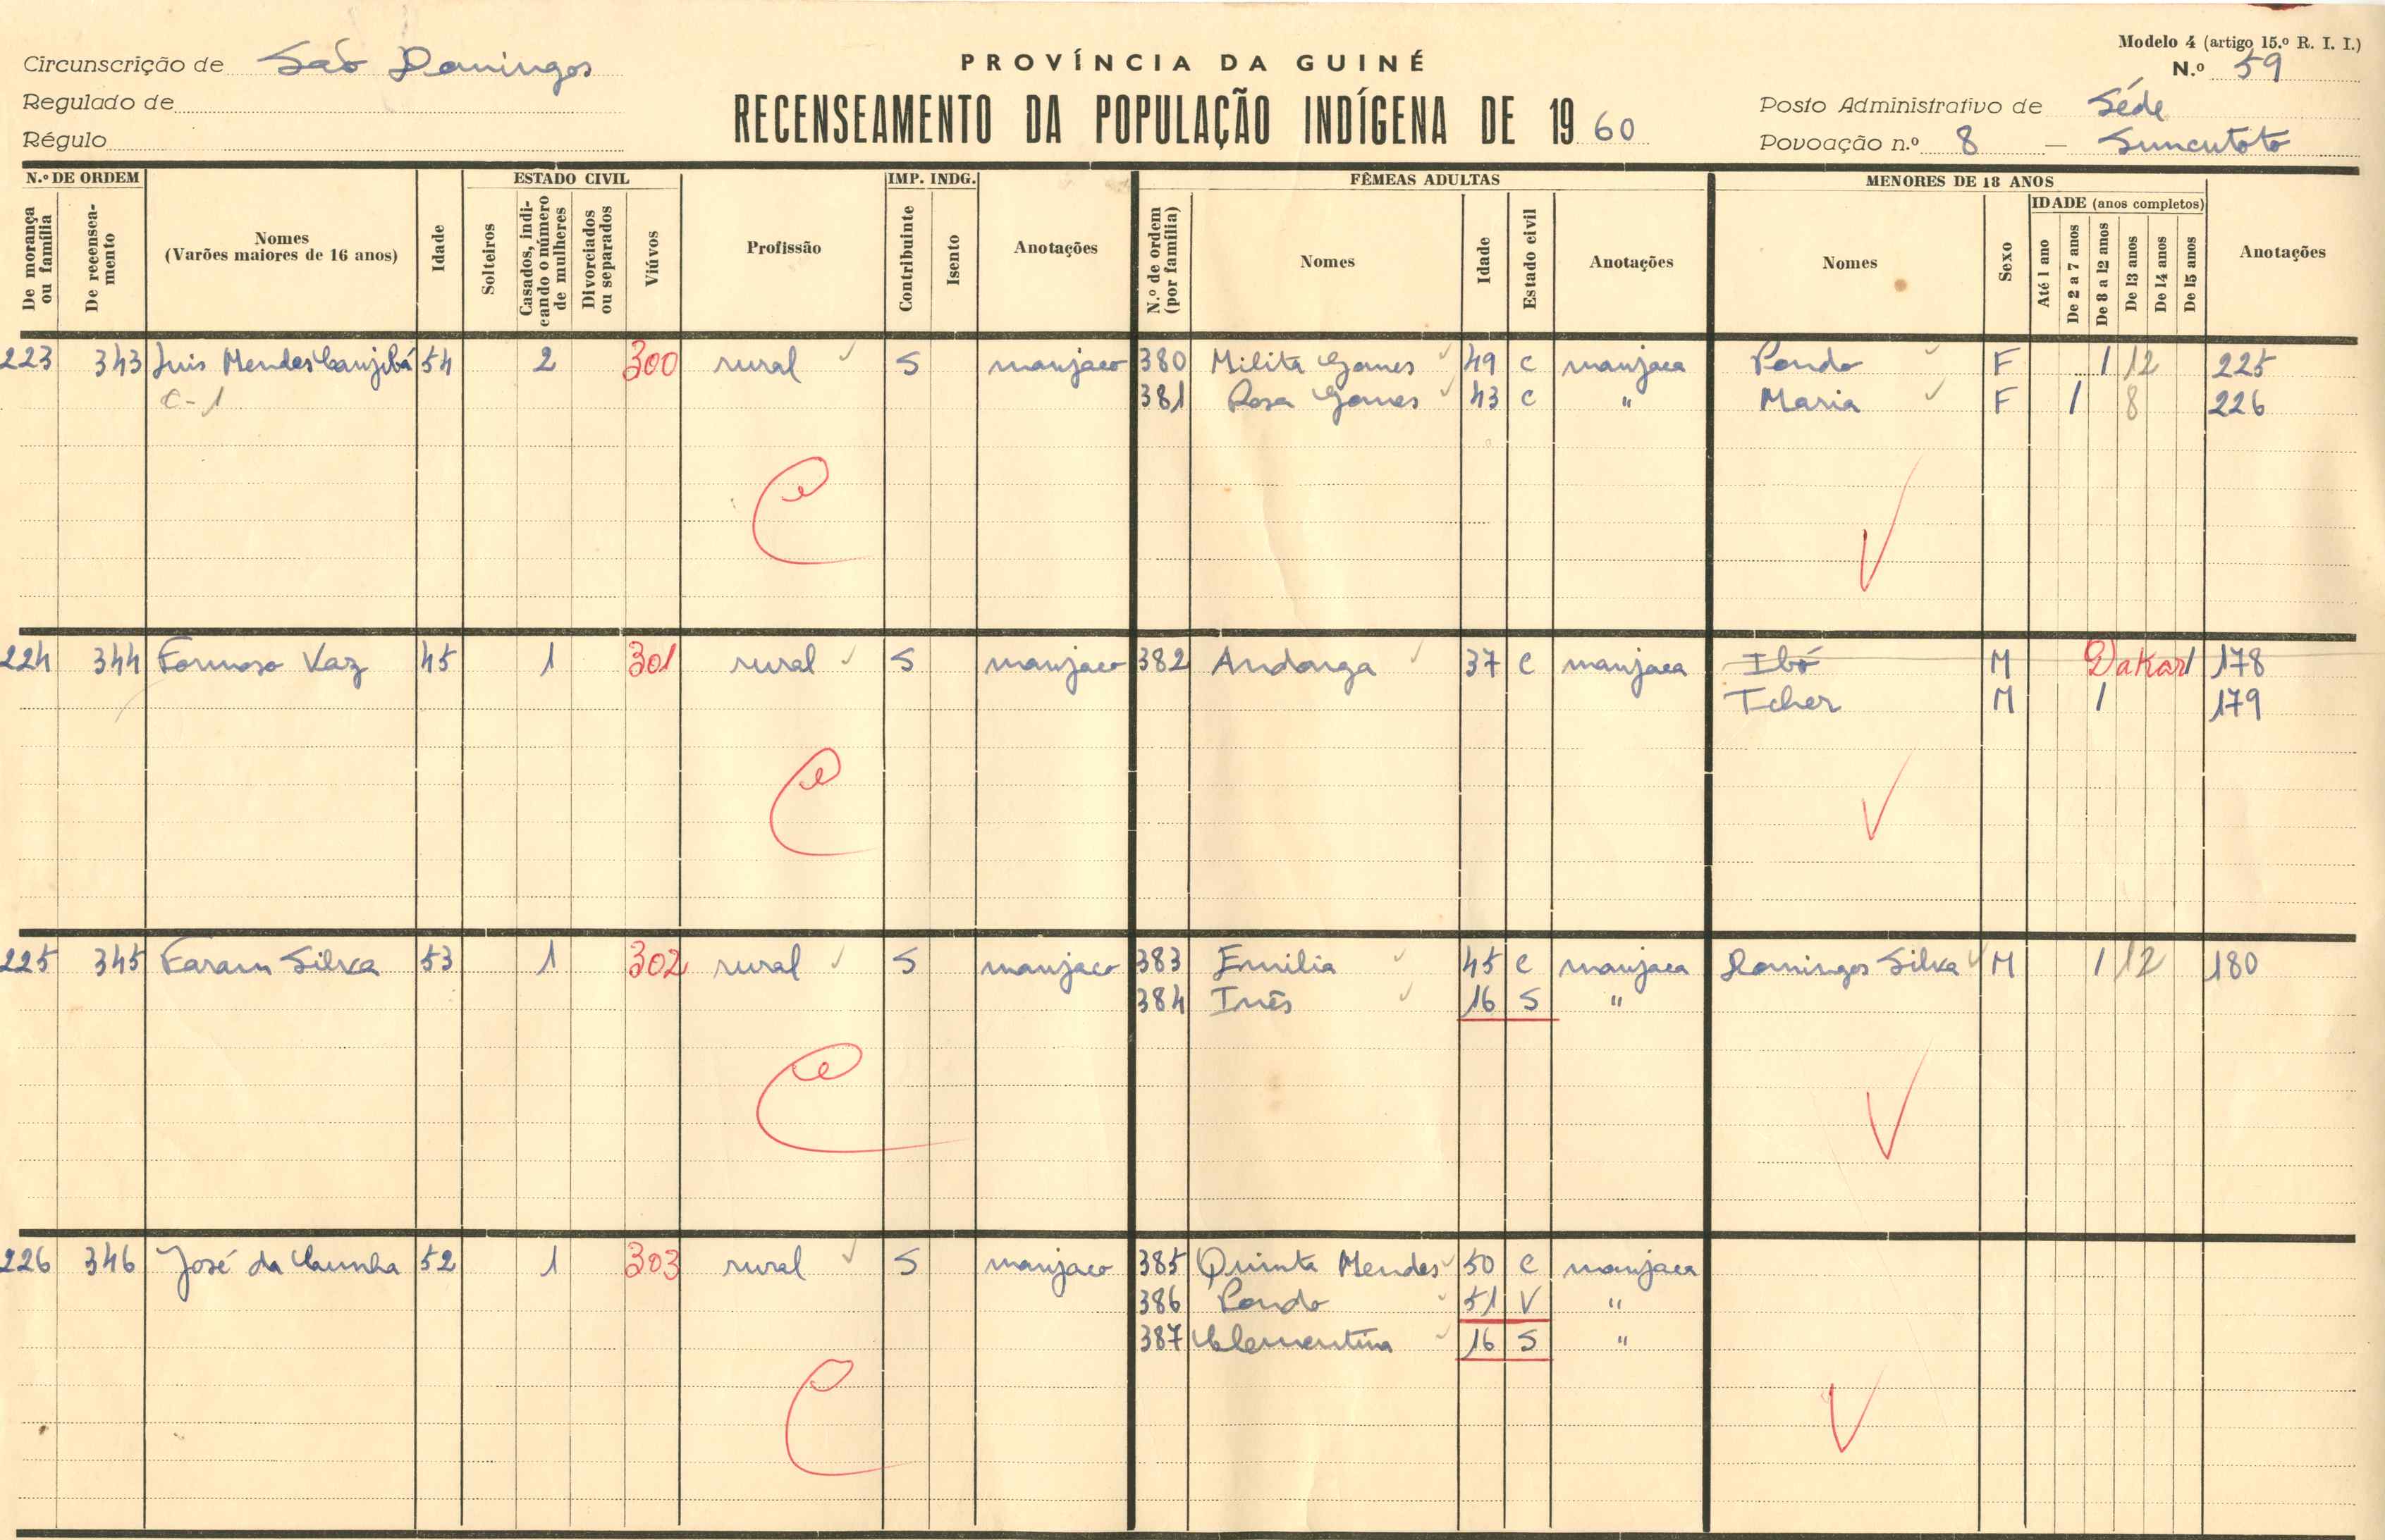 Modelo 4 (artigo 15.º R. I. I.)
Circunscrição de Saõ Domingos
PROVÍNCIA DA GUINÉ
N.º 59
Regulado de
RECENSEAMENTO DA POPULAÇÃO INDÍGENA DE 1960
Posto Administrativo de Séde
Régulo
Povoação n.º 8 — Suncutoto
N.º DE ORDEM ESTADO CIVIL IMP. INDG. FÊMEAS ADULTAS MENORES DE 18 ANOS
IDADE (anos completos)
De morança ou família
De recenseamento
Nomes
(Varões maiores de 16 anos)
Idade
Solteiros
Casados, indicando o número de mulheres
Divorciados ou separados
Viúvos
Profissão
Contribuinte
Isento
Anotações
N.º de ordem (por família)
Nomes
Idade
Estado civil
Anotações
Nomes
Sexo
Até 1 ano
De 2 a 7 anos
De 8 a 12 anos
De 13 anos
De 14 anos
De 15 anos
Anotações
223 343 Luis Mendes Canjibá 54 2 300 rural S manjaco 380 Milita Gomes 49 C manjaca Pondo F 1 12 225
C-1 381 Rosa Gomes 43 C " Maria F 1 8 226
224 344 Formoso Vaz 45 1 301 rural S manjaco 382 Andonga 37 C manjaca Ibó M Dakar 1 178
Tcher M 1 179
225 345 Faram Silva 53 1 302 rural S manjaco 383 Emilia 45 C manjaca Domingos Silva M 1 12 180
384 Inês 16 S "
226 346 José da Cunha 52 1 303 rural S manjaco 385 Quinta Mendes 50 C manjaca
386 Pondo 51 V "
387 Clementina 16 S "